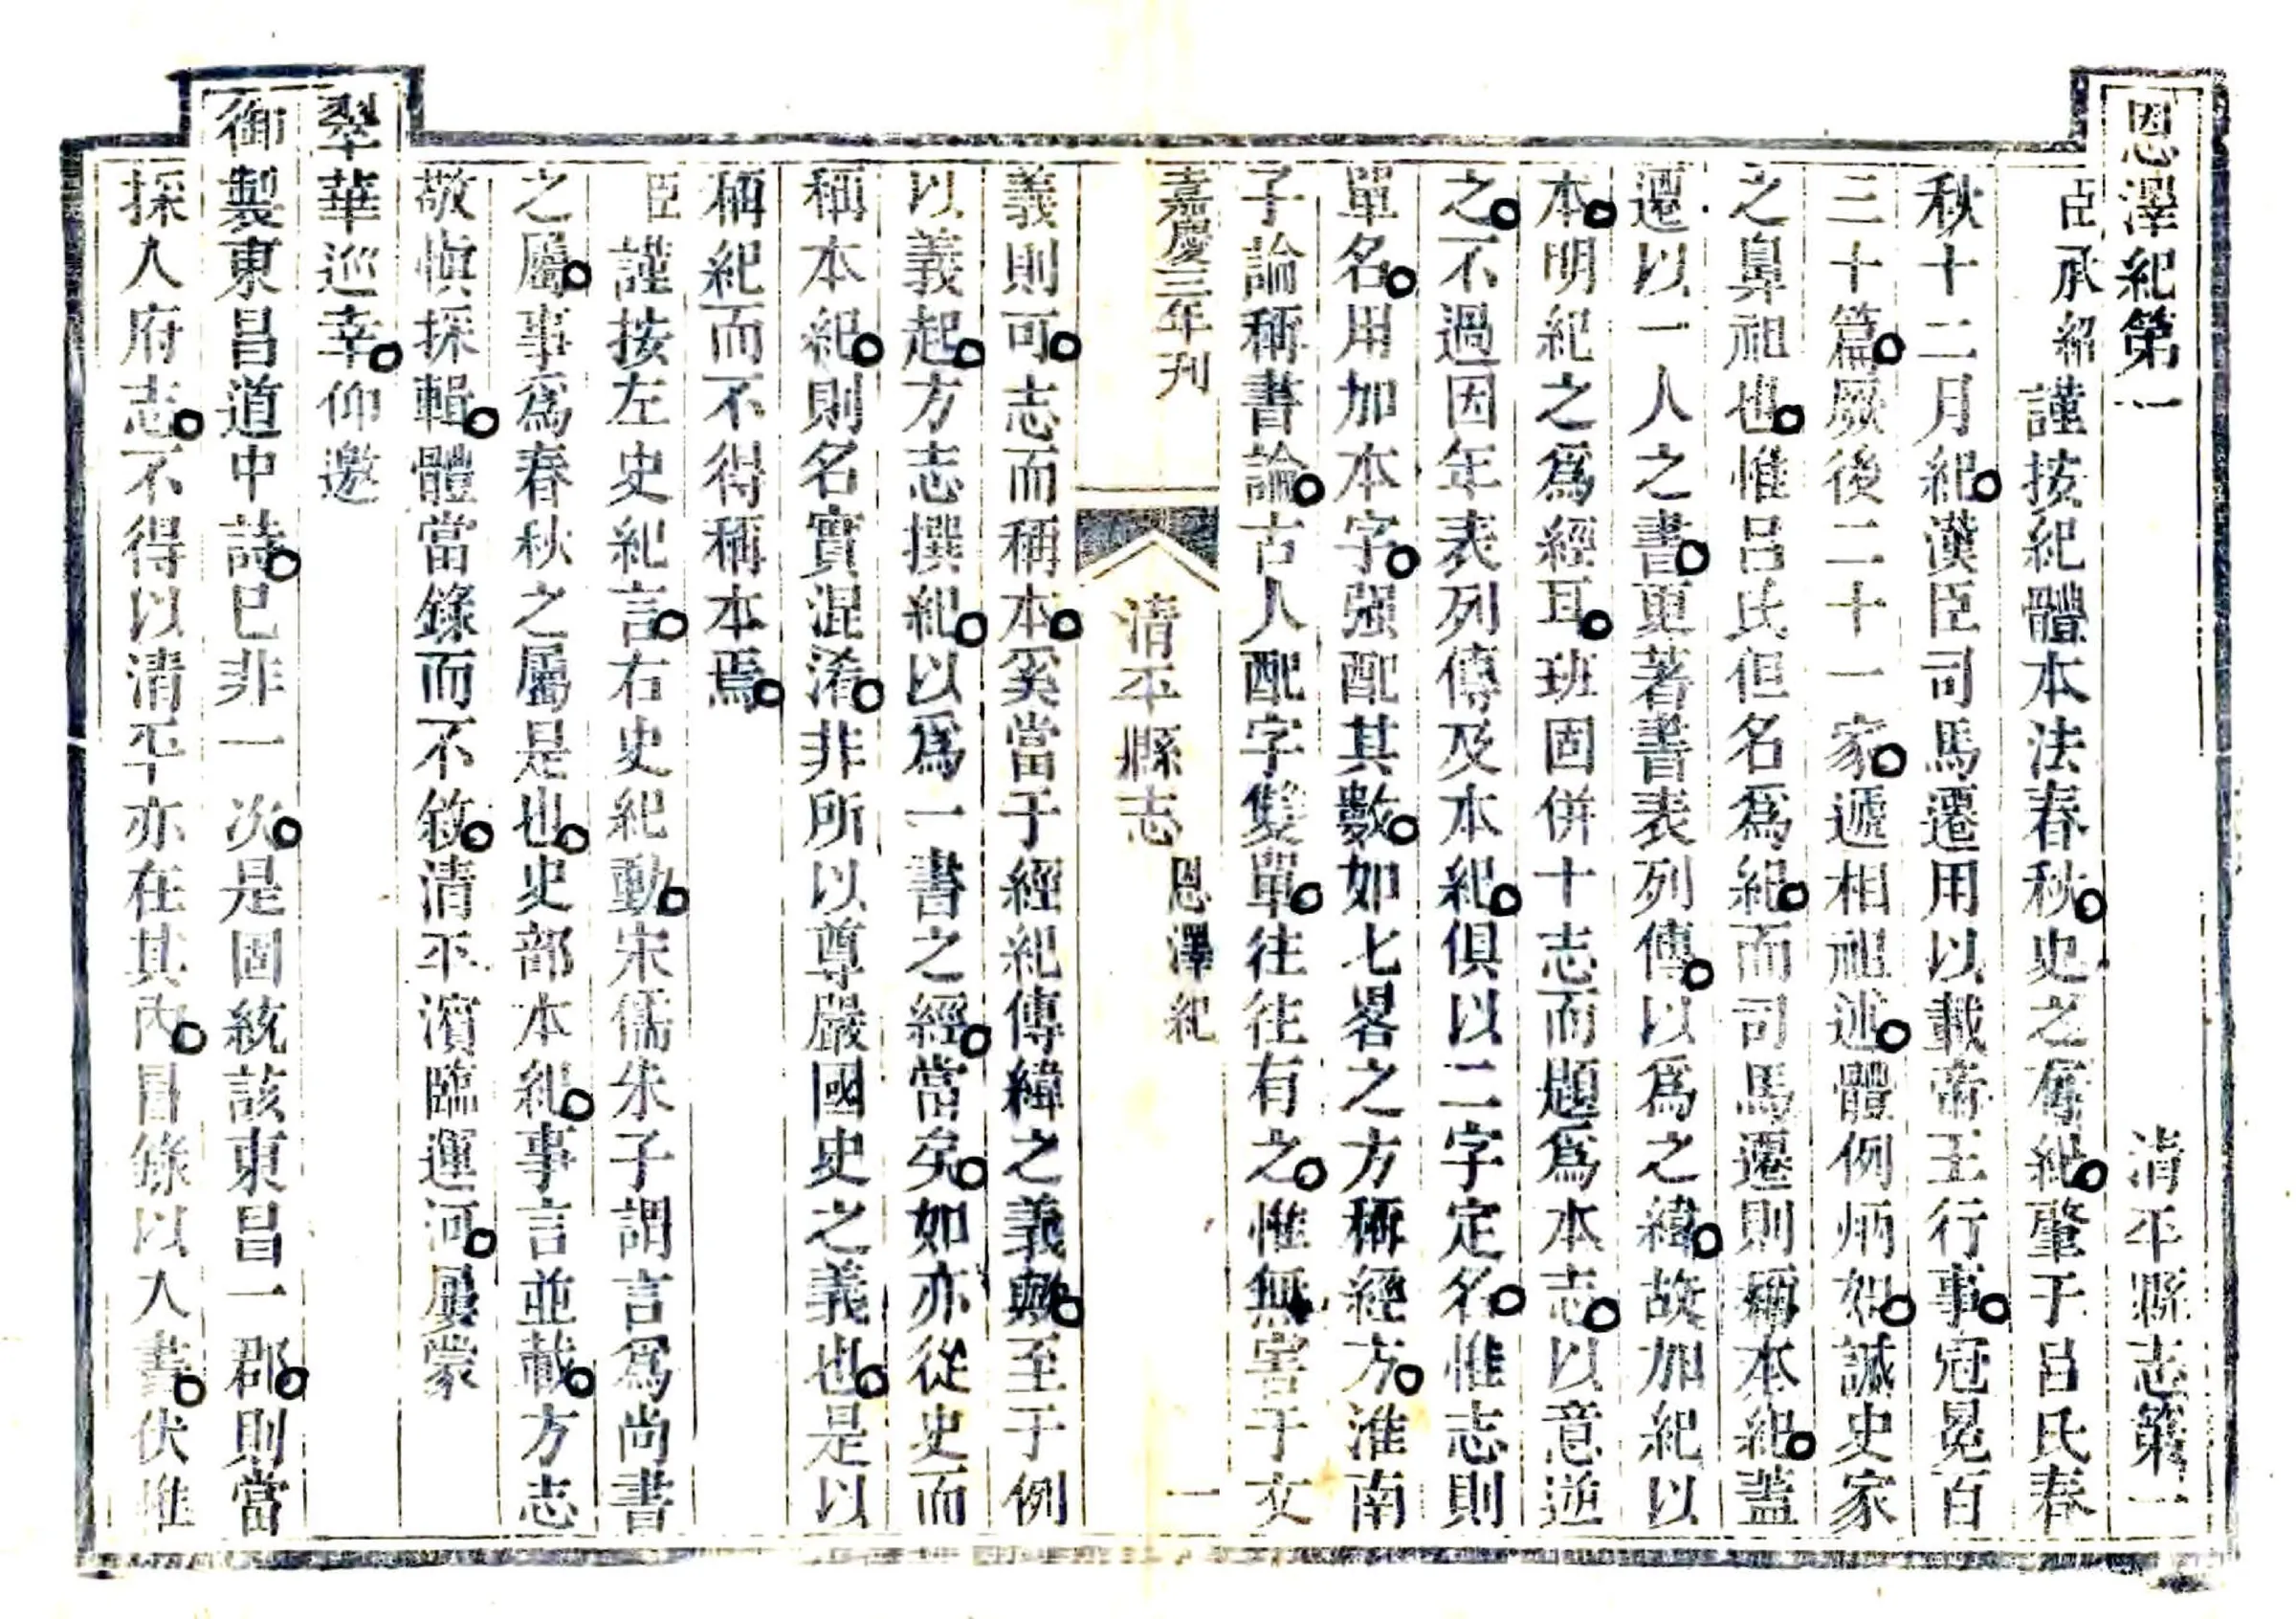 恩澤紀第一　清平縣志第一
臣承紹謹按紀體本法春秋史之有紀肇于呂氏春
秋十二月紀漢臣司馬遷用以載帝王行事冠冕百
三十篇厥後二十一家遞相祖述體例炳如誠史家
之鼻祖也惟呂氏但名爲紀而司馬遷則稱本紀蓋
遷以一人之書更著書表列傳以爲之緯故加紀以
本明紀之爲經耳班固併十志而題爲本志以意逆
之不過因年表列傳及本紀俱以二字定名惟志則
單名用加本字强配其數如七畧之方稱經方淮南
子論稱書論古人配字雙單往往有之惟無害于文
嘉慶三年刊　清平縣志　恩澤紀　一
義則可志而稱本奚當于經紀傳緯之義歟至于例
以義起方志撰紀以爲一書之經當矣如亦從史而
稱本紀則名實混淆非所以尊嚴國史之義也是以
稱紀而不得稱本焉
臣謹按左史紀言右史紀動宋儒朱子謂言爲尚書
之屬事爲春秋之屬是也史部本紀事言並載方志
敬慎採輯體當錄而不敘清平濱臨運河屢蒙
翠華巡幸仰邀
御製東昌道中詩已非一次是固統該東昌一郡則當
採入府志不得以清平亦在其內冒錄以入書伏惟